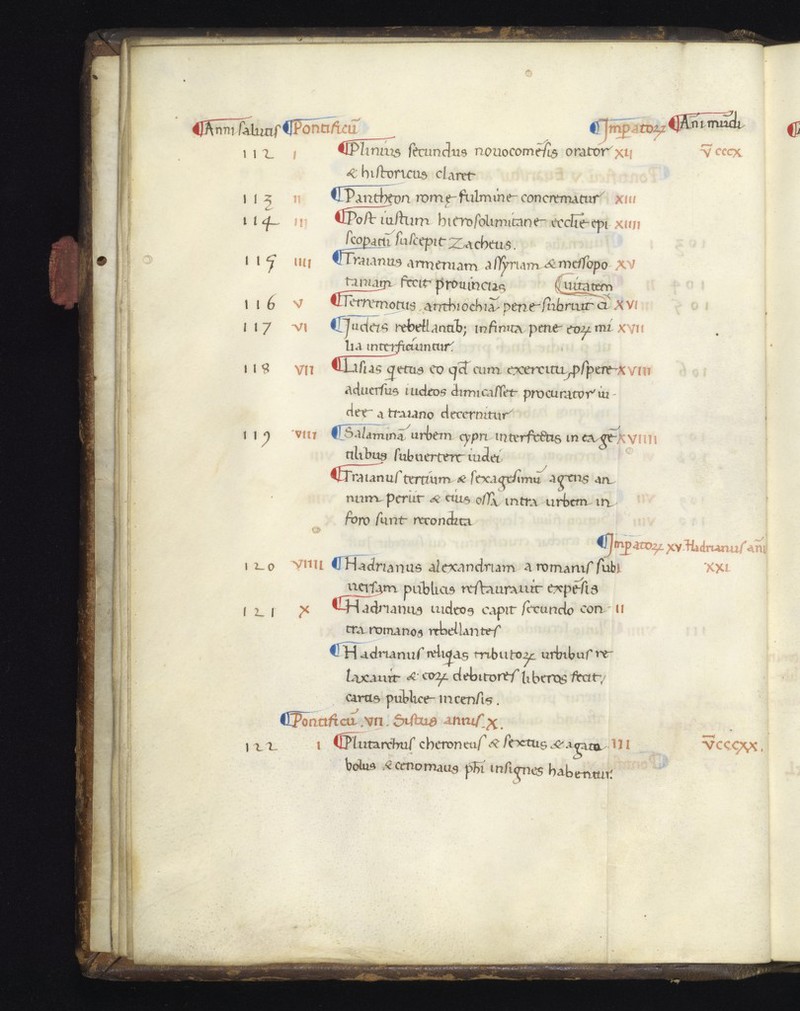 Anni salutis Pontificū Impatoꝝ Ani mudi
112 I Plinius secundus nouocomēsis orator XII V̅ cccx
& historicus claret
113 II Pantheon rome fulmine concrematur XIII
114 III Post iustum hierosolimitane ecclie epi XIIII
scopatū suscepit Zacheus.
115 IIII Traianus armeniam assyriam & messopo XV
taniam fecit prouincias (Ciuitatem
116 V Terremotus anthiochiā pene subruit XVI
117 VI Iudeis rebellantib; infinita pene eoꝝ mi XVII
lia interficiuntur.
118 VII Lisias qetus eo qd cum exercitu pspere XVIII
aduersus iudeos dimicasset procurator iu
dee a traiano decernitur
119 VIII Salaminā urbem cypri interfectis in ea gē XVIIII
tilibus subuertere iudei
Traianus tertium & sexagesimū agens an
num periit & eius ossa intra urbem in
foro sunt recondita
Impatoꝝ XV Hadrianus añi
120 VIIII Hadrianus alexandriam a romanis sub I XXI
uersam publicis restaurauit expēsis
121 X Hadrianus iudeos capit secundo con II
tra romanos rebellantes
Hadrianus reliqas tributoꝝ urbibus re
laxauit & eoꝝ debitores liberos fecit,
cartis publice incensis.
Pontificū. VII. Sistus annis. X.
122 I Plutarchus cheroneus & sextus & agata III V̅cccxx.
bolus & cenomaus phi insignes habentur.